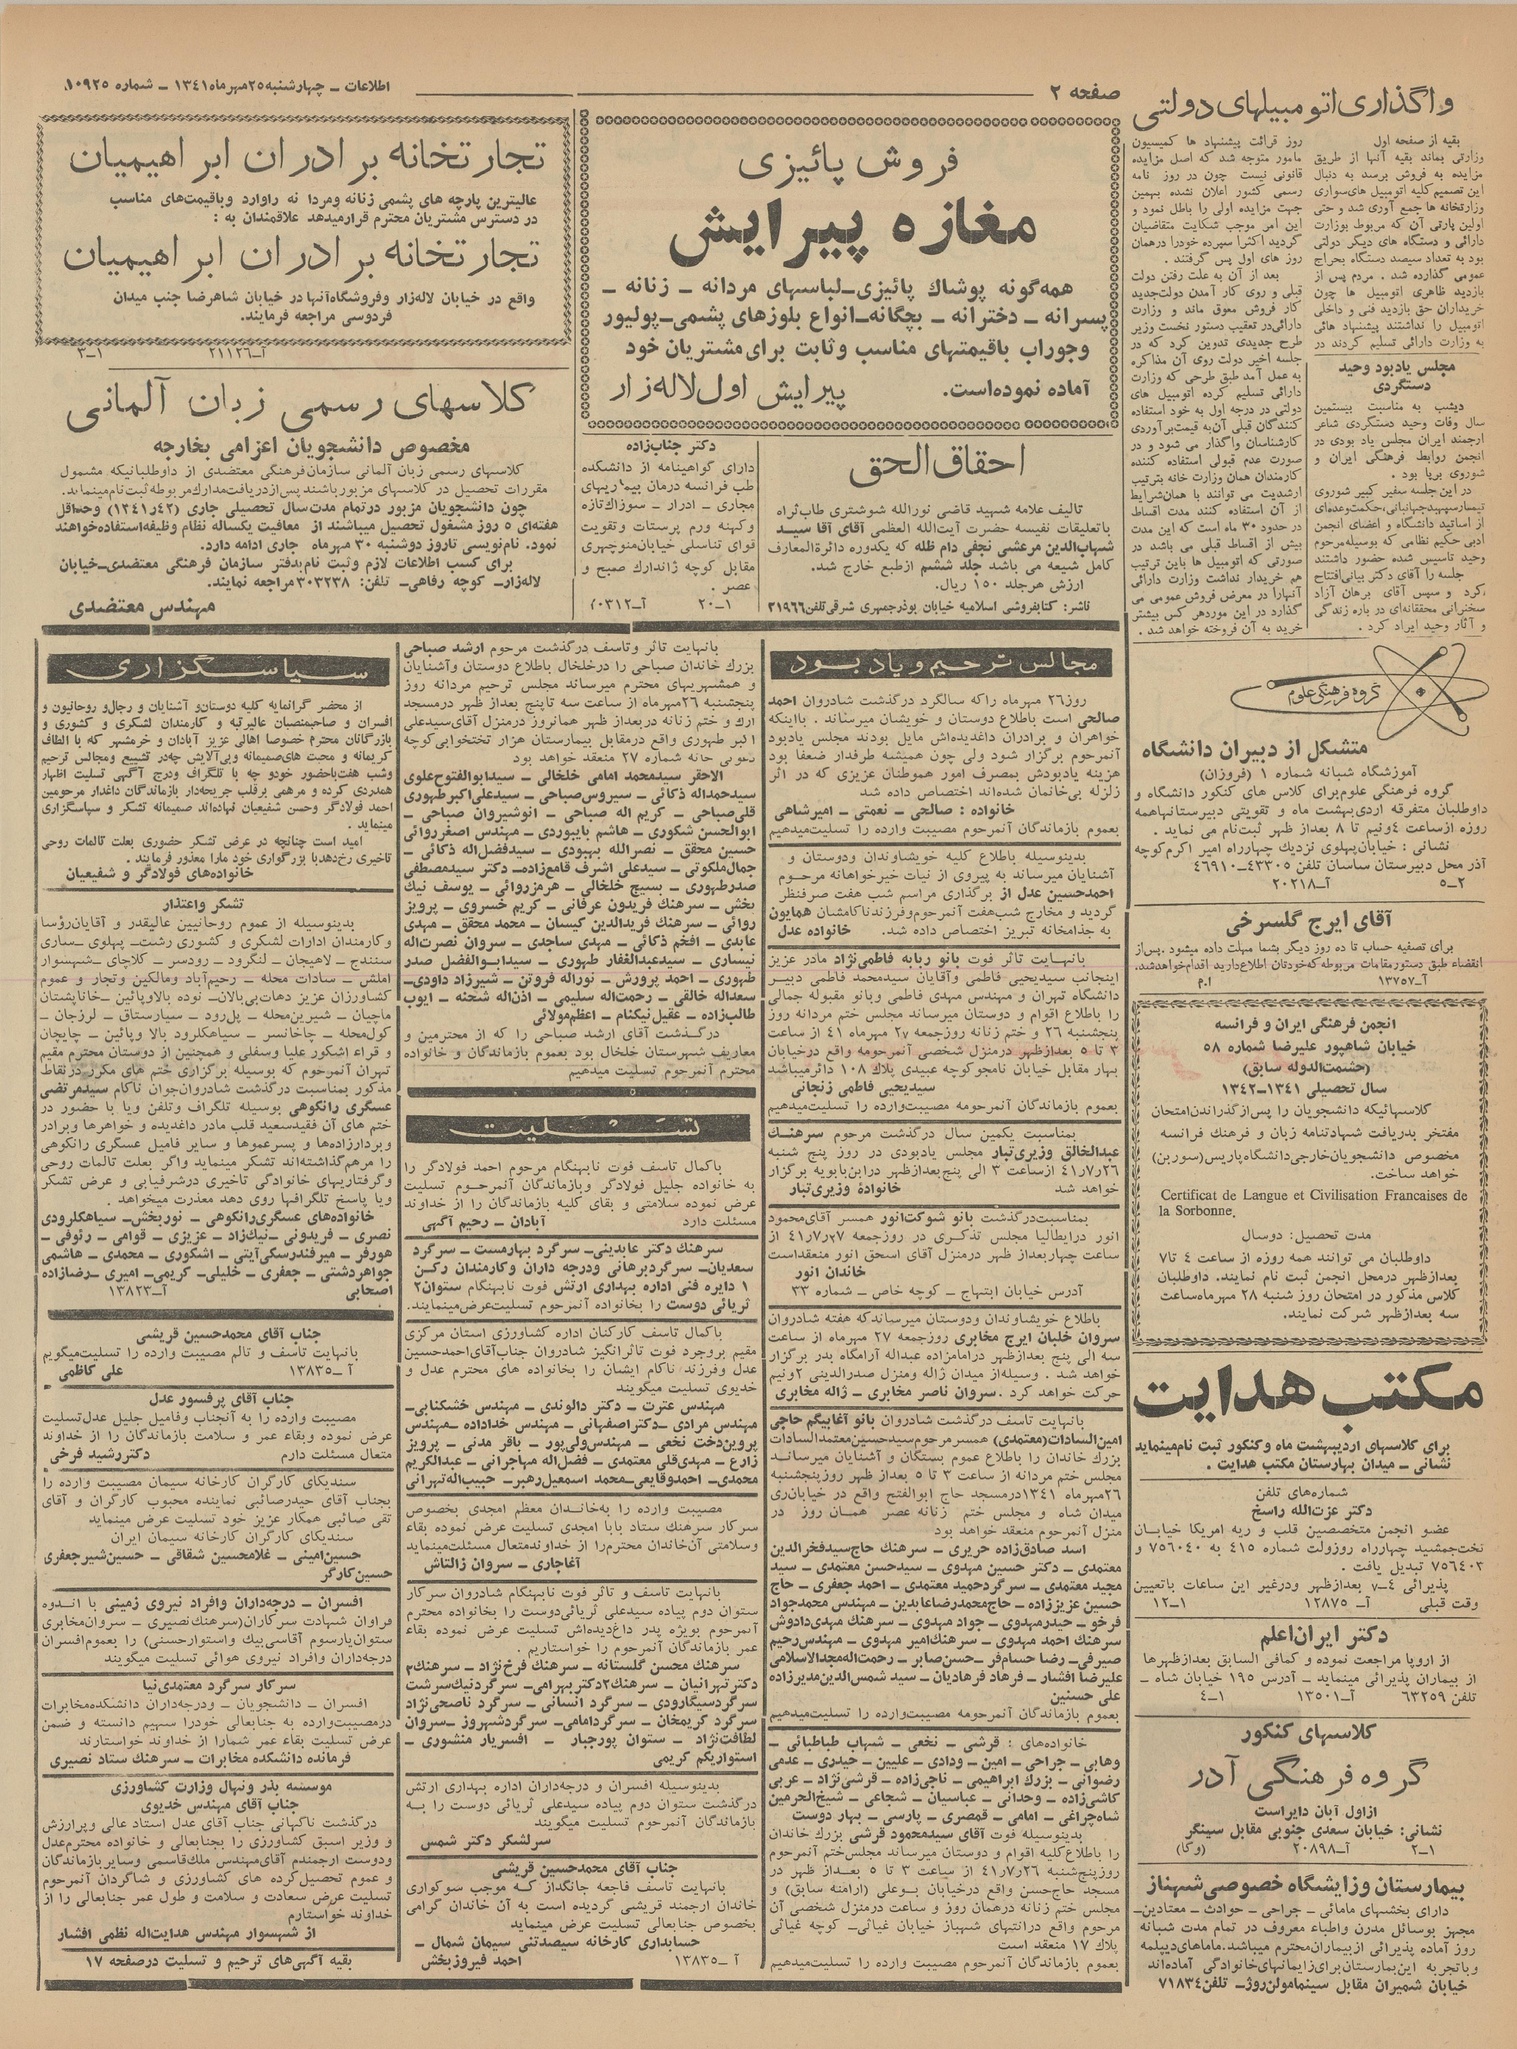 صفحه ۲
اطلاعات ـ چهارشنبه ۲۵ مهر ماه ۱۳۴۱ ـ شماره ۱۰۹۲۵
واگذاری اتومبیلهای دولتی
بقیه از صفحه اول
وزارتی بماند بقیه آنها از طریق
مزایده به فروش برسد به دنبال
این تصمیم کلیه اتومبیل های سواری
وزارتخانه ها جمع آوری شد و حتی
اولین پارتی آن که مربوط بوزارت
دارائی و دستگاه های دیگر دولتی
بود به تعداد سیصد دستگاه بحراج
عمومی گذارده شد . مردم پس از
بازدید ظاهری اتومبیل ها چون
خریداران حق بازدید فنی و داخلی
اتومبیل را نداشتند پیشنهاد هائی
به وزارت دارائی تسلیم کردند در
روز قرائت پیشنهاد ها کمیسیون
مامور متوجه شد که اصل مزایده
قانونی نیست چون در روز نامه
رسمی کشور اعلان نشده بهمین
جهت مزایده اولی را باطل نمود و
این امر موجب شکایت متقاضیان
گردید اکثرا سپرده خودرا درهمان
روز های اول پس گرفتند .
بعد از آن به علت رفتن دولت
قبلی و روی کار آمدن دولت جدید
کار فروش معوق ماند و وزارت
دارائی در تعقیب دستور نخست وزیر
طرح جدیدی تدوین کرد که در
جلسه اخیر دولت روی آن مذاکره
به عمل آمد طبق طرحی که وزارت
دارائی تسلیم کرده اتومبیل های
دولتی در درجه اول به خود استفاده
کنندگان قبلی آن به قیمت برآوردی
کارشناسان واگذار می شود و در
صورت عدم قبولی استفاده کننده
کارمندان همان وزارت خانه بترتیب
ارشدیت می توانند با همان شرایط
از آن استفاده کنند مدت اقساط
در حدود ۳۰ ماه است که این مدت
بیش از اقساط قبلی می باشد در
صورتی که اتومبیل ها باین ترتیب
هم خریدار نداشت وزارت دارائی
آنهارا در معرض فروش عمومی می
گذارد در این موردهر کس بیشتر
خرید به آن فروخته خواهد شد .
مجلس یادبود وحید
دستگردی
دیشب به مناسبت بیستمین
سال وفات وحید دستگردی شاعر
ارجمند ایران مجلس یاد بودی در
انجمن روابط فرهنگی ایران و
شوروی برپا بود .
در این جلسه سفیر کبیر شوروی
تیمسار سپهبد جهانبانی، حکمت وعده ای
از اساتید دانشگاه و اعضای انجمن
ادبی حکیم نظامی که بوسیله مرحوم
وحید تاسیس شده حضور داشتند
جلسه را آقای دکتر بیانی افتتاح
کرد و سپس آقای برهان آزاد
سخنرانی محققانه ای در باره زندگی
و آثار وحید ایراد کرد .
گروه فرهنگی علوم
متشکل از دبیران دانشگاه
آموزشگاه شبانه شماره ۱ (فروزان)
گروه فرهنگی علوم برای کلاس های کنکور دانشگاه و
داوطلبان متفرقه اردیبهشت ماه و تقویتی دبیرستانها همه
روزه از ساعت ۴ونیم تا ۸ بعداز ظهر ثبت نام می نماید .
نشانی : خیابان پهلوی نزدیک چهارراه امیر اکرم کوچه
آذر محل دبیرستان ساسان تلفن ۴۳۳۰۵ـ۴۶۹۱۰
۲ـ۵ آـ۲۰۲۱۸
آقای ایرج گلسرخی
برای تصفیه حساب تا ده روز دیگر بشما مهلت داده میشود . پس از
انقضاء طبق دستور مقامات مربوطه که خودتان اطلاع دارید اقدام خواهد شد.
آـ۱۳۷۵۷ ا.م
انجمن فرهنگی ایران و فرانسه
خیابان شاهپور علیرضا شماره ۵۸
(حشمت الدوله سابق)
سال تحصیلی ۱۳۴۱ـ۱۳۴۲
کلاسهائیکه دانشجویان را پس از گذراندن امتحان
مفتخر بدریافت شهادتنامه زبان و فرهنگ فرانسه
مخصوص دانشجویان خارجی دانشگاه پاریس (سوربن)
خواهد ساخت.
Certificat de Langue et Civilisation Francaises de
la Sorbonne.
مدت تحصیل: دوسال
داوطلبان می توانند همه روزه از ساعت ۴ تا ۷
بعدازظهر درمحل انجمن ثبت نام نمایند. داوطلبان
کلاس مذکور در امتحان روز شنبه ۲۸ مهرماه ساعت
سه بعدازظهر شرکت نمایند.
مکتب هدایت
برای کلاسهای اردیبهشت ماه وکنکور ثبت نام مینماید
نشانی ـ میدان بهارستان مکتب هدایت .
شماره های تلفن
دکتر عزت الله راسخ
عضو انجمن متخصصین قلب و ریه امریکا خیابان
تخت جمشید چهارراه روزولت شماره ۴۱۵ به ۷۵۶۰۴۰ و
۷۵۶۴۰۳ تبدیل یافت .
پذیرائی ۴ـ۷ بعدازظهر ودرغیر این ساعات باتعیین
وقت قبلی آـ ۱۲۸۷۵ ۱ـ۱۲
دکتر ایران اعلم
از اروپا مراجعت نموده و کمافی السابق بعدازظهرها
از بیماران پذیرائی مینماید ـ آدرس ۱۹۵ خیابان شاه ـ
تلفن ۶۳۲۵۹ آـ۱۳۵۰۱ ۱ـ۴
کلاسهای کنکور
گروه فرهنگی آذر
از اول آبان دایر است
نشانی: خیابان سعدی جنوبی مقابل سینگر
۱ـ۲ آـ۲۰۸۹۸ (وکا)
بیمارستان وزایشگاه خصوصی شهناز
دارای بخشهای مامائی ـ جراحی ـ حوادث ـ معتادین ـ
مجهز بوسائل مدرن واطباء معروف در تمام مدت شبانه
روز آماده پذیرائی از بیماران محترم میباشد. ماماهای دیپلمه
وباتجربه این بیمارستان برای زایمانهای خانوادگی آماده اند
خیابان شمیران مقابل سینما مولن روژ ـ تلفن ۷۱۸۳۴
فروش پائیزی
مغازه پیرایش
همه گونه پوشاك پائیزی ـ لباسهای مردانه ـ زنانه ـ
پسرانه ـ دخترانه ـ بچگانه ـ انواع بلوزهای پشمی ـ پولیور
وجوراب باقیمتهای مناسب وثابت برای مشتریان خود
آماده نموده است. پیرایش اول لاله زار
تجارتخانه برادران ابراهیمیان
عالیترین پارچه های پشمی زنانه ومردانه راوارد وباقیمت های مناسب
در دسترس مشتریان محترم قرار میدهد علاقمندان به :
تجارتخانه برادران ابراهیمیان
واقع در خیابان لاله زار وفروشگاه آنها در خیابان شاهرضا جنب میدان
فردوسی مراجعه فرمایند.
آـ۲۱۱۲۶ ۱ـ۳
کلاسهای رسمی زبان آلمانی
مخصوص دانشجویان اعزامی بخارجه
کلاسهای رسمی زبان آلمانی سازمان فرهنگی معتضدی از داوطلبانیکه مشمول
مقررات تحصیل در کلاسهای مزبور باشند پس از دریافت مدارك مربوطه ثبت نام مینماید.
چون دانشجویان مزبور درتمام مدت سال تحصیلی جاری (۴۲ر۱۳۴۱) وحداقل
هفته ای ۵ روز مشغول تحصیل میباشند از معافیت یکساله نظام وظیفه استفاده خواهند
نمود. نام نویسی تا روز دوشنبه ۳۰ مهرماه جاری ادامه دارد.
برای کسب اطلاعات لازم وثبت نام بدفتر سازمان فرهنگی معتضدی ـ خیابان
لاله زار ـ کوچه رفاهی ـ تلفن: ۳۰۳۲۳۸ مراجعه نمایند.
مهندس معتضدی
احقاق الحق
تالیف علامه شهید قاضی نورالله شوشتری طاب ثراه
باتعلیقات نفیسه حضرت آیت الله العظمی آقای آقا سید
شهاب الدین مرعشی نجفی دام ظله که یکدوره دائرة المعارف
کامل شیعه می باشد جلد ششم از طبع خارج شد.
ارزش هر جلد ۱۵۰ ریال.
ناشر: کتابفروشی اسلامیه خیابان بوذرجمهری شرقی تلفن ۲۱۹۶۶
دکتر جناب زاده
دارای گواهینامه از دانشکده
طب فرانسه درمان بیماریهای
مجاری ـ ادرار ـ سوزاك تازه
وکهنه ورم پرستات وتقویت
قوای تناسلی خیابان منوچهری
مقابل کوچه ژاندارك صبح و
عصر .
۱ـ۲۰ آـ۲۰۳۱۲
مجالس ترحیم و یادبود
روز ۲۶ مهرماه راکه سالگرد درگذشت شادروان احمد
صالحی است باطلاع دوستان و خویشان میرساند . بااینکه
خواهران و برادران داغدیده اش مایل بودند مجلس یادبود
آنمرحوم برگزار شود ولی چون همیشه طرفدار ضعفا بود
هزینه یادبودش بمصرف امور هموطنان عزیزی که در اثر
زلزله بی خانمان شده اند اختصاص داده شد
خانواده : صالحی ـ نعمتی ـ امیرشاهی
بعموم بازماندگان آنمرحوم مصیبت وارده را تسلیت میدهیم
بدینوسیله باطلاع کلیه خویشاوندان ودوستان و
آشنایان میرساند به پیروی از نیات خیرخواهانه مرحوم
احمدحسین عدل از برگذاری مراسم شب هفت صرفنظر
گردید و مخارج شب هفت آنمرحوم وفرزند ناکامشان همایون
به جذامخانه تبریز اختصاص داده شد. خانواده عدل
بانهایت تاثر فوت بانو ربابه فاطمی نژاد مادر عزیز
اینجانب سیدیحیی فاطمی وآقایان سیدمحمد فاطمی دبیر
دانشگاه تهران و مهندس مهدی فاطمی وبانو مقبوله جمالی
را باطلاع اقوام و دوستان میرساند مجلس ختم مردانه روز
پنجشنبه ۲۶ و ختم زنانه روزجمعه ۲۷ مهرماه ۴۱ از ساعت
۳ تا ۵ بعدازظهر درمنزل شخصی آنمرحومه واقع درخیابان
بهار مقابل خیابان نامجو کوچه عبیدی پلاك ۱۰۸ دائر میباشد
سیدیحیی فاطمی زنجانی
بعموم بازماندگان آنمرحومه مصیبت وارده را تسلیت میدهیم
بمناسبت یکمین سال درگذشت مرحوم سرهنگ
عبدالخالق وزیری تبار مجلس یادبودی در روز پنج شنبه
۲۶ر۷ر۴۱ از ساعت ۳ الی پنج بعدازظهر درابن بابویه برگزار
خواهد شد خانواده وزیری تبار
بمناسبت درگذشت بانو شوکت انور همسر آقای محمود
انور درایطالیا مجلس تذکری در روز جمعه ۲۷ر۷ر۴۱ از
ساعت چهاربعداز ظهر درمنزل آقای اسحق انور منعقداست
خاندان انور
آدرس خیابان ابتهاج ـ کوچه خاص ـ شماره ۳۳
باطلاع خویشاوندان ودوستان میرساند که هفته شادروان
سروان خلبان ایرج مخابری روزجمعه ۲۷ مهرماه از ساعت
سه الی پنج بعدازظهر درامامزاده عبداله آرامگاه بدر برگزار
خواهد شد . وسیله از میدان ژاله ومنزل صدرالدینی ۲ونیم
حرکت خواهد کرد . سروان ناصر مخابری ـ ژاله مخابری
بانهایت تاسف درگذشت شادروان بانو آغابیگم حاجی
امین السادات (معتمدی) همسر مرحوم سیدحسین معتمدالسادات
بزرك خاندان را باطلاع عموم بستگان و آشنایان میرساند
مجلس ختم مردانه از ساعت ۳ تا ۵ بعداز ظهر روز پنجشنبه
۲۶مهرماه ۱۳۴۱درمسجد حاج ابوالفتح واقع در خیابان ری
میدان شاه و مجلس ختم زنانه عصر همان روز در
منزل آنمرحوم منعقد خواهد بود
اسد صادق زاده حریری ـ سرهنگ حاج سیدفخرالدین
معتمدی ـ دکتر حسین مهدوی ـ سیدحسن معتمدی ـ سید
مجید معتمدی ـ سرگردحمید معتمدی ـ احمد جعفری ـ حاج
حسین عزیززاده ـ حاج محمدرضا عابدین ـ مهندس محمدجواد
فرخو ـ حیدرمهدوی ـ جواد مهدوی ـ سرهنگ مهدی دادوش
سرهنگ احمد مهدوی ـ سرهنگ امیر مهدوی ـ مهندس رحیم
صیرفی ـ رضا حسام فر ـ حسن صابر ـ رحمت اله مجدالاسلامی
علیرضا افشار ـ فرهاد فرهادیان ـ سید شمس الدین مدیرزاده
علی حسنین
بعموم بازماندگان آنمرحومه مصیبت وارده را تسلیت میدهیم
خانواده های : قرشی ـ نخعی ـ شهاب طباطبائی ـ
وهابی ـ جراحی ـ امین ـ ودادی ـ علیین ـ حیدری ـ عدمی
رضوانی ـ بزرك ابراهیمی ـ ناجی زاده ـ قرشی نژاد ـ عربی
کاشی زاده ـ وحدانی ـ عباسیان ـ شجاعی ـ شیخ الحرمین
شاه چراغی ـ امامی ـ قمصری ـ پارسی ـ بهار دوست
بدینوسیله فوت آقای سیدمحمود قرشی بزرك خاندان
را باطلاع کلیه اقوام و دوستان میرساند مجلس ختم آنمرحوم
روزپنج شنبه ۲۶ر۷ر۴۱ از ساعت ۳ تا ۵ بعداز ظهر در
مسجد حاج حسن واقع درخیابان بوعلی (ارامنه سابق) و
مجلس ختم زنانه درهمان روز و ساعت درمنزل شخصی آن
مرحوم واقع درانتهای شهباز خیابان غیاثی ـ کوچه غیاثی
پلاك ۱۷ منعقد است
بعموم بازماندگان آنمرحوم مصیبت وارده را تسلیت میدهیم
بانهایت تاثر وتاسف درگذشت مرحوم ارشد صباحی
بزرك خاندان صباحی را درخلخال باطلاع دوستان وآشنایان
و همشهریهای محترم میرساند مجلس ترحیم مردانه روز
پنجشنبه ۲۶مهرماه از ساعت سه تاپنج بعداز ظهر درمسجد
ارك و ختم زنانه دربعداز ظهر همانروز درمنزل آقای سیدعلی
اکبر طهوری واقع درمقابل بیمارستان هزار تختخوابی کوچه
خانه شماره ۲۷ منعقد خواهد بود
الاحقر سیدمحمد امامی خلخالی ـ سیدابوالفتوح علوی
سیدحمداله ذکائی ـ سیروس صباحی ـ سیدعلی اکبر طهوری
قلی صباحی ـ کریم اله صباحی ـ انوشیروان صباحی ـ
ابوالحسن شکوری ـ هاشم بایبوردی ـ مهندس اصغر روائی
حسین محقق ـ نصرالله بهبودی ـ سیدفضل اله ذکائی ـ
جمال ملکوتی ـ سیدعلی اشرف قامع زاده ـ دکتر سیدمصطفی
صدر طهوری ـ بسیج خلخالی ـ هرمز روائی ـ یوسف نیك
بخش ـ سرهنگ فریدون عرفانی ـ کریم خسروی ـ پرویز
روائی ـ سرهنگ فریدالدین کیسان ـ محمد محقق ـ مهدی
عابدی ـ افخم ذکائی ـ مهدی ساجدی ـ سروان نصرت اله
نیساری ـ سیدعبدالغفار طهوری ـ سیدابوالفضل صدر
طهوری ـ احمد پرورش ـ نوراله فروتن ـ شیرزاد داودی ـ
سعداله خالقی ـ رحمت اله سلیمی ـ اذن اله شحنه ـ ایوب
طالب زاده ـ عقیل نیکنام ـ اعظم مولائی
درگذشت آقای ارشد صباحی را که از محترمین و
معاریف شهرستان خلخال بود بعموم بازماندگان و خانواده
محترم آنمرحوم تسلیت میدهیم
تسلیت
باکمال تاسف فوت نابهنگام مرحوم احمد فولادگر را
به خانواده جلیل فولادگر وبازماندگان آنمرحوم تسلیت
عرض نموده سلامتی و بقای کلیه بازماندگان را از خداوند
مسئلت دارد آبادان ـ رحیم آگهی
سرهنگ دکتر عابدینی ـ سرگرد بهارمست ـ سرگرد
سعدیان ـ سرگرد برهانی ودرجه داران وکارمندان رکن
۱ دایره فنی اداره بهداری ارتش فوت نابهنگام ستوان۲
ثریائی دوست را بخانواده آنمرحوم تسلیت عرض مینمایند.
باکمال تاسف کارکنان اداره کشاورزی استان مرکزی
مقیم بروجرد فوت تاثرانگیز شادروان جناب آقای احمدحسین
عدل وفرزند ناکام ایشان را بخانواده های محترم عدل و
خدیوی تسلیت میگویند
مهندس عترت ـ دکتر دالوندی ـ مهندس خشکنابی ـ
مهندس مرادی ـ دکتر اصفهانی ـ مهندس خداداده ـ مهندس
پروین دخت نخعی ـ مهندس ولی پور ـ باقر مدنی ـ پرویز
زارع ـ مهدی قلی معتمدی ـ فضل اله مهاجرانی ـ عبدالکریم
محمدی ـ احمد وقایعی ـ محمد اسمعیل رهبر ـ حبیب اله تهرانی
مصیبت وارده را به خاندان معظم امجدی بخصوص
سرکار سرهنگ ستاد بابا امجدی تسلیت عرض نموده بقاء
وسلامتی آن خاندان محترم را از خداوند متعال مسئلت مینماید
آغاجاری ـ سروان زالتاش
بانهایت تاسف و تاثر فوت نابهنگام شادروان سرکار
ستوان دوم پیاده سیدعلی ثریائی دوست را بخانواده محترم
آنمرحوم بویژه پدر داغ دیده اش تسلیت عرض نموده بقاء
عمر بازماندگان آنمرحوم را خواستاریم .
سرهنگ محسن گلستانه ـ سرهنگ فرخ نژاد ـ سرهنگ۲
دکتر تهرانیان ـ سرهنگ۲ دکتر بهرامی ـ سرگرد نیك سرشت
سرگرد سیگارودی ـ سرگرد انسانی ـ سرگرد ناصحی نژاد
سرگرد کریمخان ـ سرگرد امامی ـ سرگرد شهروز ـ سروان
لطافت نژاد ـ ستوان پورجبار ـ افسریار منشوری ـ
استواریکم کریمی
بدینوسیله افسران و درجه داران اداره بهداری ارتش
درگذشت ستوان دوم پیاده سیدعلی ثریائی دوست را به
بازماندگان آنمرحوم تسلیت میگویند
سرلشگر دکتر شمس
جناب آقای محمدحسین قریشی
بانهایت تاسف فاجعه جانگداز که موجب سوکواری
خاندان ارجمند قریشی گردیده است به آن خاندان گرامی
بخصوص جنابعالی تسلیت عرض مینماید
حسابداری کارخانه سیصدتنی سیمان شمال ـ
آ ـ۱۳۸۳۵ احمد فیروزبخش
سپاسگزاری
از محضر گرانمایه کلیه دوستان و آشنایان و رجال و روحانیون و
افسران و صاحبمنصبان عالیرتبه و کارمندان لشکری و کشوری و
بازرگانان محترم خصوصا اهالی عزیز آبادان و خرمشهر که با الطاف
کریمانه و محبت های صمیمانه وبی آلایش چه درتشییع ومجالس ترحیم
وشب هفت باحضور خود و چه با تلگراف ودرج آگهی تسلیت اظهار
همدردی کرده و مرهمی برقلب جریحه دار بازماندگان داغدار مرحومین
احمد فولادگر وحسن شفیعیان نهاده اند صمیمانه تشکر و سپاسگزاری
مینماید .
امید است چنانچه در عرض تشکر حضوری بعلت تالمات روحی
تاخیری رخ دهد با بزرگواری خود مارا معذور فرمایند .
خانواده های فولادگر و شفیعیان
تشکر واعتذار
بدینوسیله از عموم روحانیین عالیقدر و آقایان رؤسا
وکارمندان ادارات لشکری و کشوری رشت ـ پهلوی ـ ساری
سنندج ـ لاهیجان ـ لنگرود ـ رودسر ـ کلاچای ـ شهسوار
املش ـ سادات محله ـ رحیم آباد ومالکین وتجار و عموم
کشاورزان عزیز دهات بی بالان ـ نوده بالا وپائین ـ خاناپشتان
ماچیان ـ شیرین محله ـ پل رود ـ سیارستاق ـ لرزجان ـ
کول محله ـ چاخانسر ـ سیاهکلرود بالا وپائین ـ چایجان
و قراء اشکور علیا وسفلی و همچنین از دوستان محترم مقیم
تهران آنمرحوم که بوسیله برگزاری ختم های مکرر درنقاط
مذکور بمناسبت درگذشت شادروان جوان ناکام سیدمرتضی
عسگری رانکوهی بوسیله تلگراف وتلفن ویا با حضور در
ختم های آن فقید سعید قلب مادر داغدیده و خواهرها وبرادر
وبردارزاده ها و پسرعموها و سایر فامیل عسگری رانکوهی
را مرهم گذاشته اند تشکر مینماید واگر بعلت تالمات روحی
وگرفتاریهای خانوادگی تاخیری درشرفیابی و عرض تشکر
ویا پاسخ تلگرافها روی دهد معذرت میخواهد
خانواده های عسگری رانکوهی ـ نوربخش ـ سیاهکلرودی
نصری ـ فریدونی ـ نیك زاد ـ عزیزی ـ قوامی ـ رئوفی ـ
هورفر ـ میرفندرسکی آیتی ـ اشکوری ـ محمدی ـ هاشمی
جواهردشتی ـ جعفری ـ خلیلی ـ کریمی ـ امیری ـ رضازاده
اصحابی آـ۱۳۸۲۳
جناب آقای محمدحسین قریشی
بانهایت تاسف و تالم مصیبت وارده را تسلیت میگویم
آ ـ۱۳۸۳۵ علی کاظمی
جناب آقای پرفسور عدل
مصیبت وارده را به آنجناب وفامیل جلیل عدل تسلیت
عرض نموده وبقاء عمر و سلامت بازماندگان را از خداوند
متعال مسئلت دارم دکتر رشید فرخی
سندیکای کارگران کارخانه سیمان مصیبت وارده را
بجناب آقای حیدر صائبی نماینده محبوب کارگران و آقای
تقی صائبی همکار عزیز خود تسلیت عرض مینماید
سندیکای کارگران کارخانه سیمان ایران
حسین امینی ـ غلامحسین شقاقی ـ حسین شیرجعفری
حسین کارگر
افسران ـ درجه داران وافراد نیروی زمینی با اندوه
فراوان شهادت سرکاران (سرهنگ نصیری ـ سروان مخابری
ستوان یارسوم آقاسی بیك واستوار حسنی) را بعموم افسران
درجه داران وافراد نیروی هوائی تسلیت میگویند
سرکار سرگرد معتمدی نیا
افسران ـ دانشجویان ـ ودرجه داران دانشکده مخابرات
درمصیبت وارده به جنابعالی خودرا سهیم دانسته و ضمن
عرض تسلیت بقاء عمر شمارا از خداوند خواستارند
فرمانده دانشکده مخابرات ـ سرهنگ ستاد نصیری
موسسه بذر ونهال وزارت کشاورزی
جناب آقای مهندس خدیوی
درگذشت ناگهانی جناب آقای عدل استاد عالی وپرارزش
و وزیر اسبق کشاورزی را بجنابعالی و خانواده محترم عدل
ودوست ارجمندم آقای مهندس ملك قاسمی وسایر بازماندگان
و عموم تحصیل کرده های کشاورزی و شاگردان آنمرحوم
تسلیت عرض سعادت و سلامت و طول عمر جنابعالی را از
خداوند خواستارم
از شهسوار مهندس هدایت اله نظمی افشار
بقیه آگهی های ترحیم و تسلیت درصفحه ۱۷